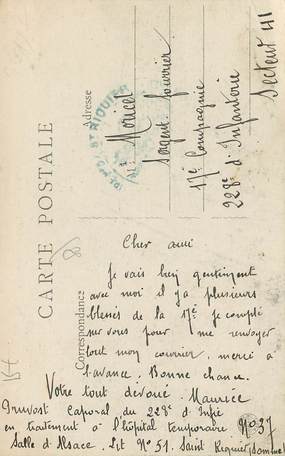 CARTE POSTALE
Correspondance
Adresse
Mr Moricet
Sergent fourrier
17e Compagnie
228e d'Infanterie
Secteur 141
Cher ami
Je vais bien gentiment
avec moi il y a plusieurs
blessés de la 17e je compte
sur vous pour me renvoyer
tout mon courrier. merci à
l'avance. Bonne chance.
Votre tout dévoué. Maurice
Pruvost Caporal du 228e d'Infie
en traitement à l'hôpital temporaire No 37
Salle d'Alsace. Lit No 51. Saint Riquier (Somme)
ST RIQUIER